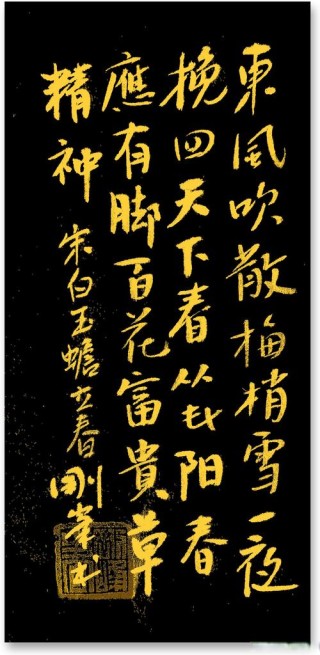 東風吹散梅梢雪一夜
挽回天下春从此阳春
應有脚百花富貴草
精神 宋白玉蟾立春 剛